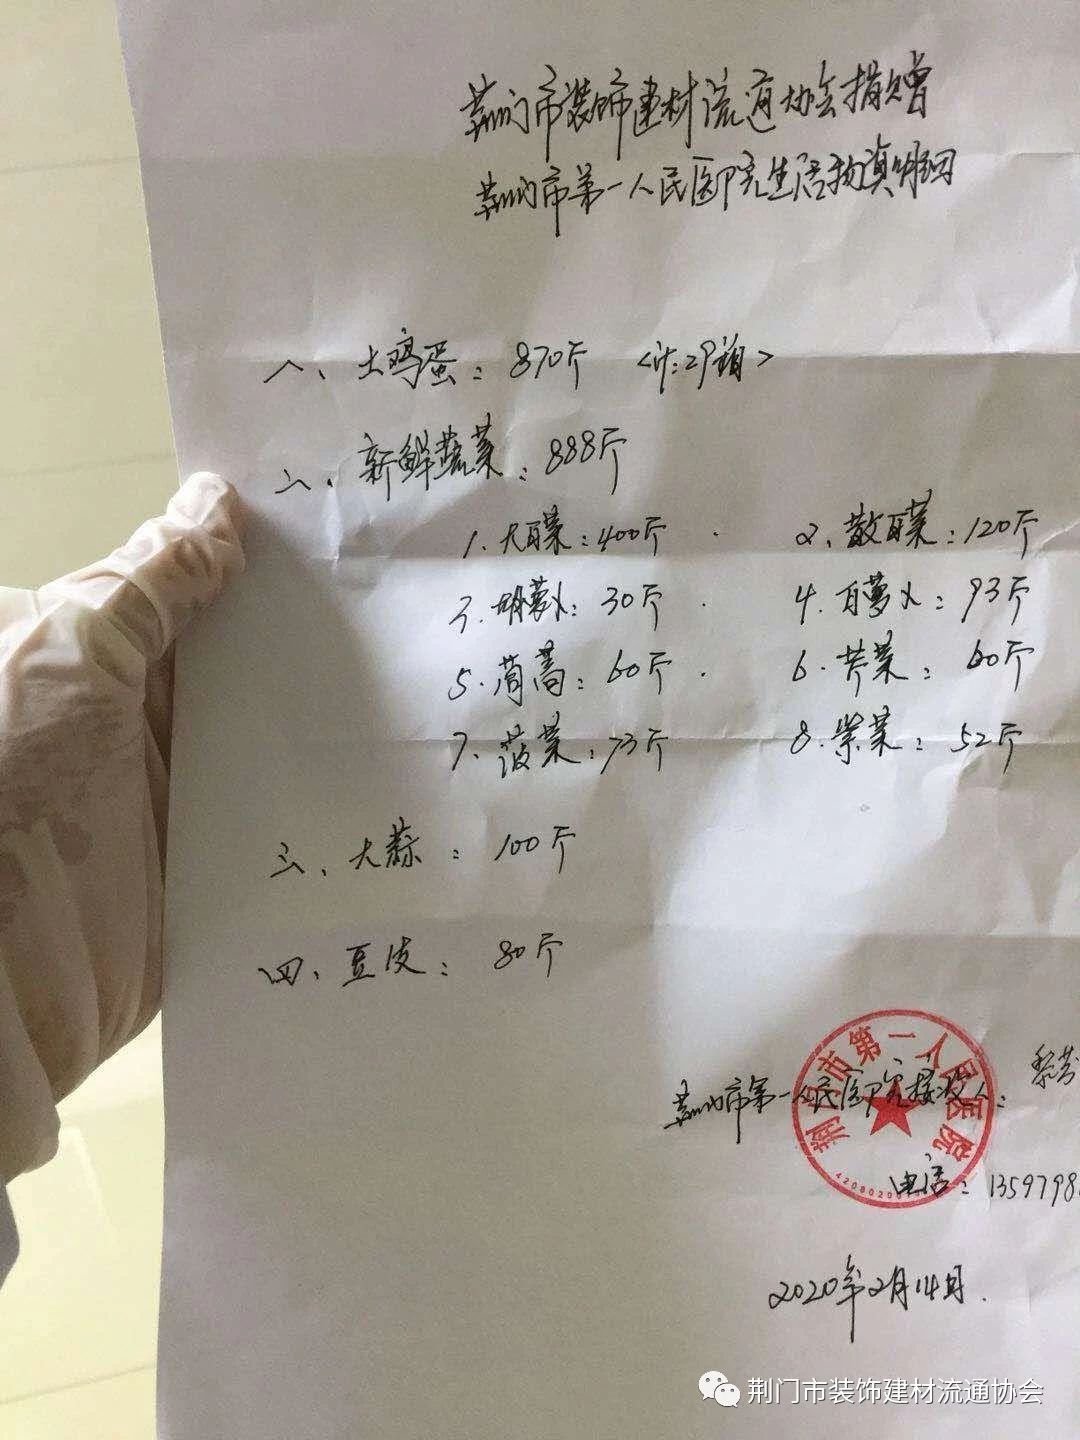 荆门市装饰建材流通协会捐赠
荆门市第一人民医院生活物资明细
一、土鸡蛋：870斤 <计:29箱>
二、新鲜蔬菜：888斤
1.大白菜：400斤. 2、散白菜：120斤
3.胡萝卜：30斤. 4.白萝卜：93斤
5.茼蒿：60斤. 6.芹菜：60斤
7.菠菜：73斤 8.紫菜：52斤
三、大蒜：100斤
四、豆皮：80斤
荆门市第一人民医院接收人：黎芳
荆门市第一人民医院
电话：1359798
2020年2月14日.
荆门市装饰建材流通协会